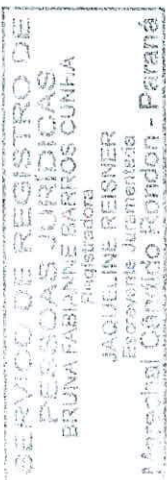 SERVIÇO DE REGISTRO DE
PESSOAS JURÍDICAS
BRUNA FABIANNE BARROS CUNHA
Registradora
JAQUELINE REISNER
Escrevente Juramentada
Marechal Cândido Rondon - Paraná